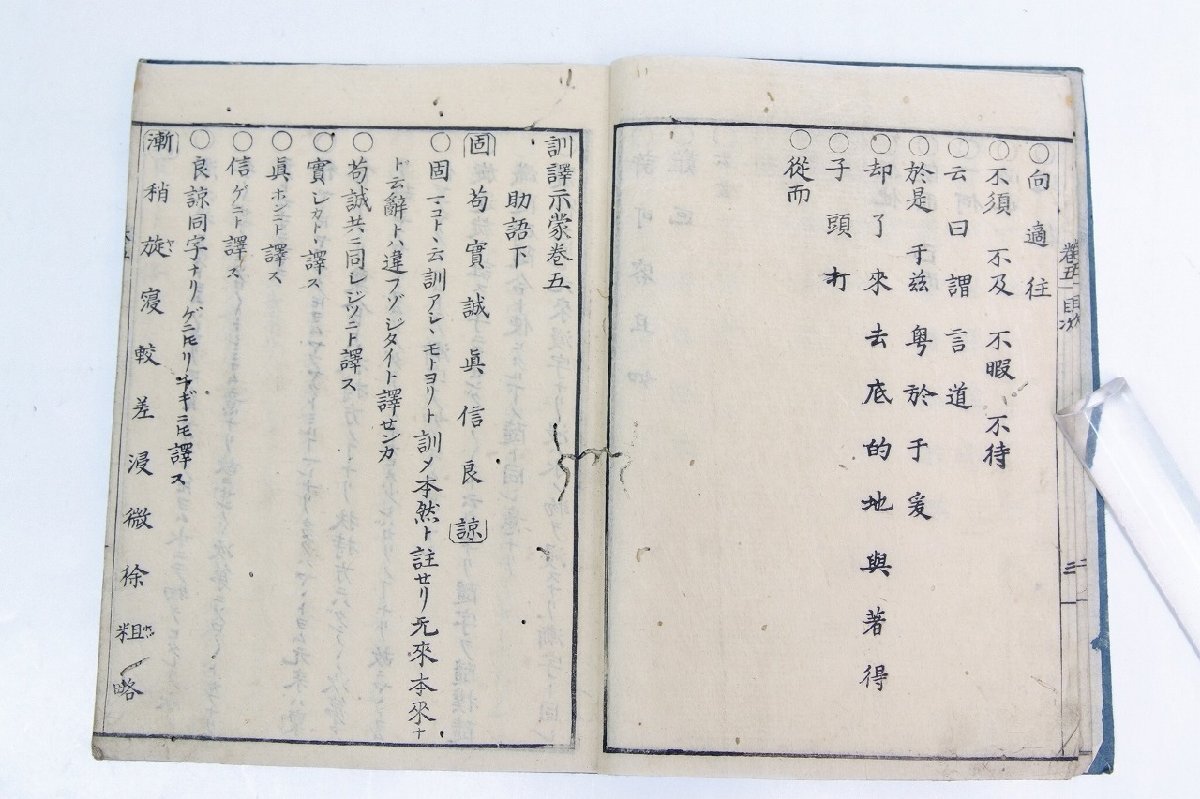 ○向 適 往
○不須 不及 不暇 不待
○云 曰 謂 言 道
○於是 于茲 粤 於 于 爰
○却 了 來 去 底 的 地 與 著 得
○子 頭 打
○從而
卷五 目次
三
訓譯示蒙卷五
助語下
固 苟 實 誠 眞 信 良 諒
○固 マコトヽ云訓アレヽモトヨリト訓メ本然ト註セリ元來本來ナ
ド云辭トハ違フゾジタイト譯センカ
○苟誠共ニ同レジツニト譯ス
○實シカトヽ譯ス
○眞ホンニト譯ス
○信ゲニト譯ス
○良諒同字ナリゲニモリチギニモ譯ス
漸 稍 旋 寖 較 差 浸 微 徐 粗 略